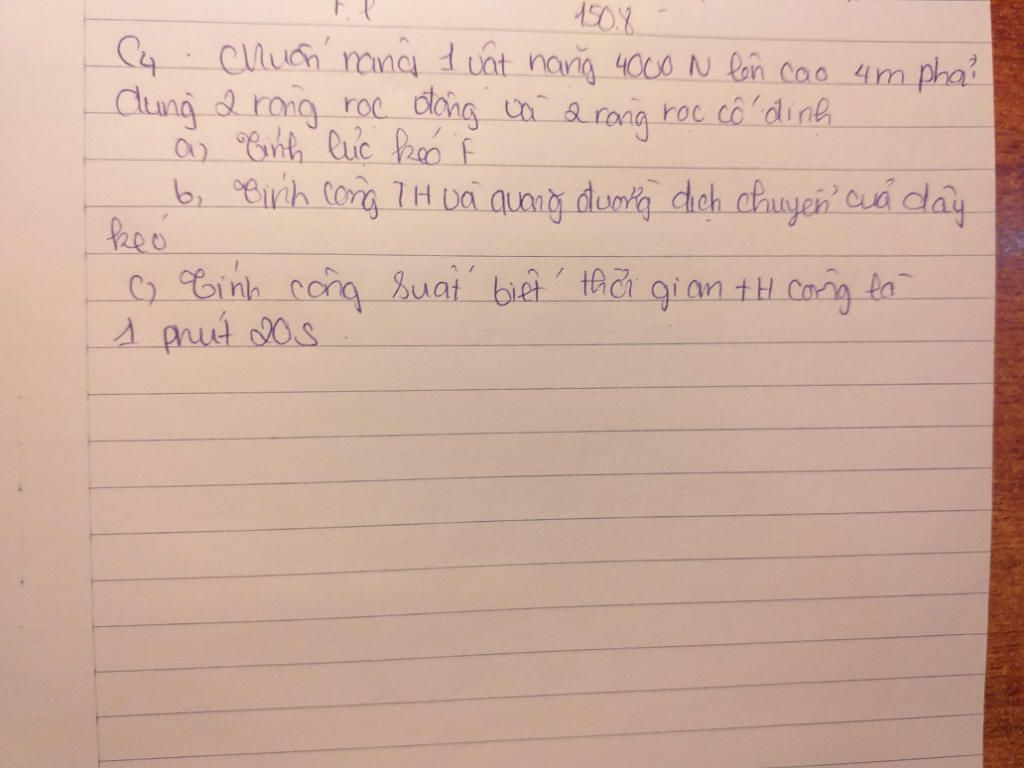 150.8
C4 : Muốn nâng 1 vật nặng 4000 N lên cao 4m phải
dùng 2 ròng rọc động và 2 ròng rọc cố định
a, Tính lực kéo F
b, Tính công TH và quãng đường dịch chuyển của dây
kéo
c, Tính công suất biết thời gian tH công là
1 phút 20s